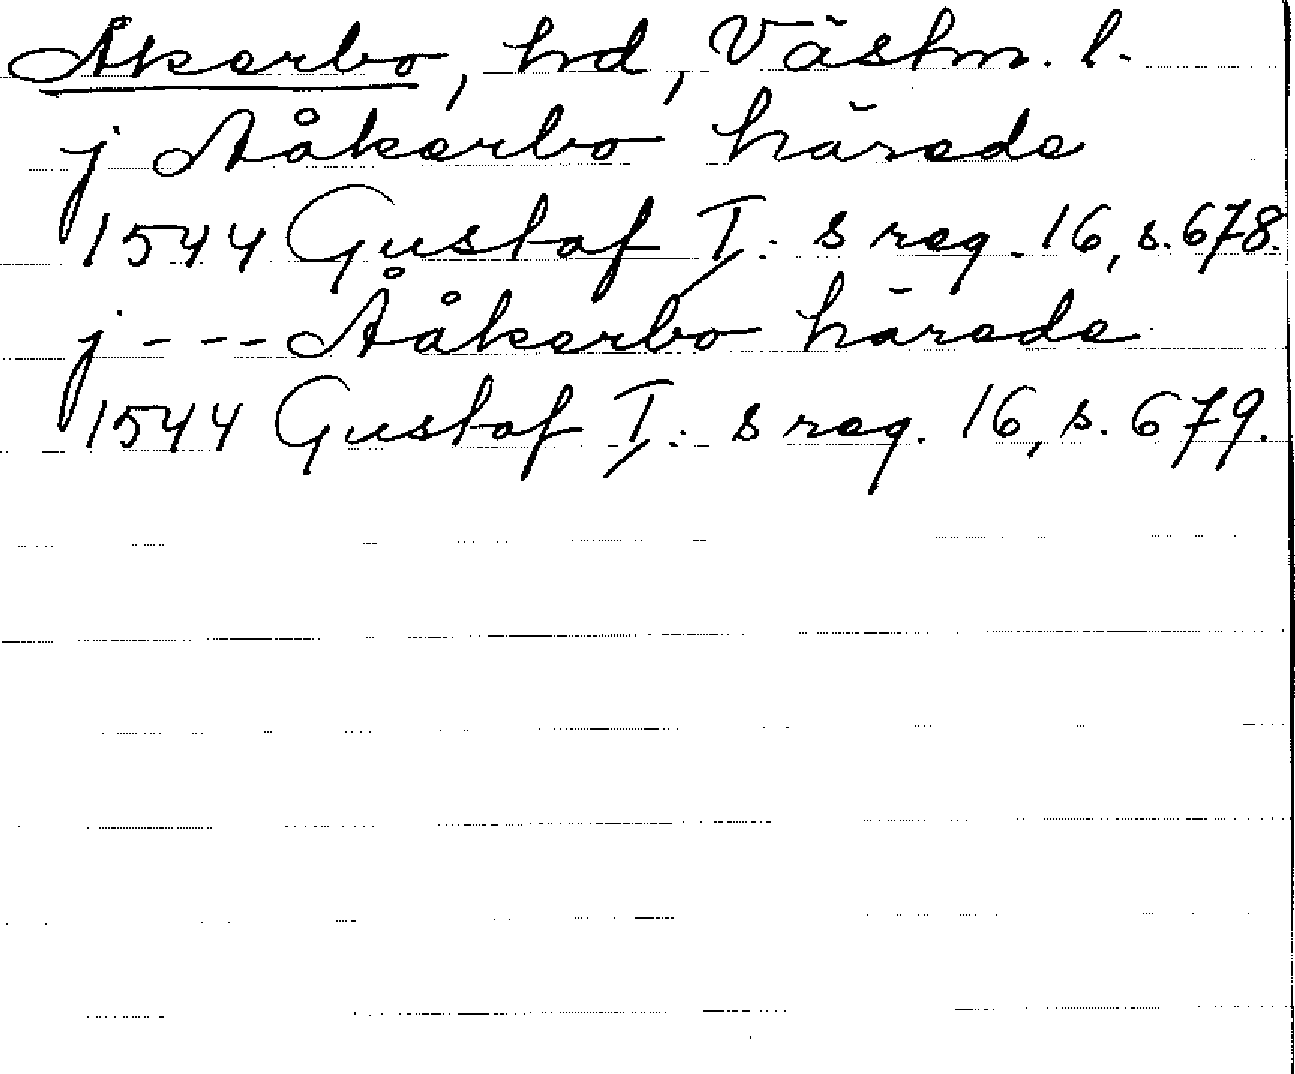 Åkerbo, hd, Västm. l.
j Aåkerbo härede
1544 Gustaf I:s reg. 16, s. 678.
j --- Ååkerbo härede
1544 Gustaf I:s reg. 16, s. 679.